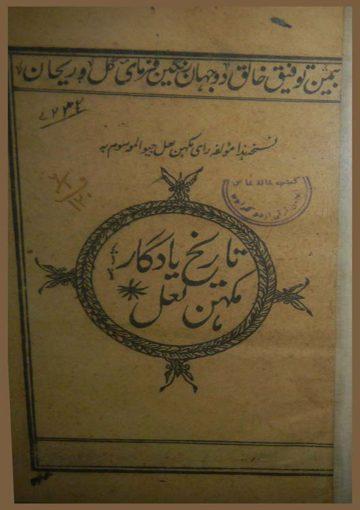 بیمن توفیق خالق دو جہان رنگین فرمای گل و ریحان
نسخہ ہذا مولفہ رای مکھن لعل جیو الموسوم بہ
تاریخ یادگار
مکھن لعل